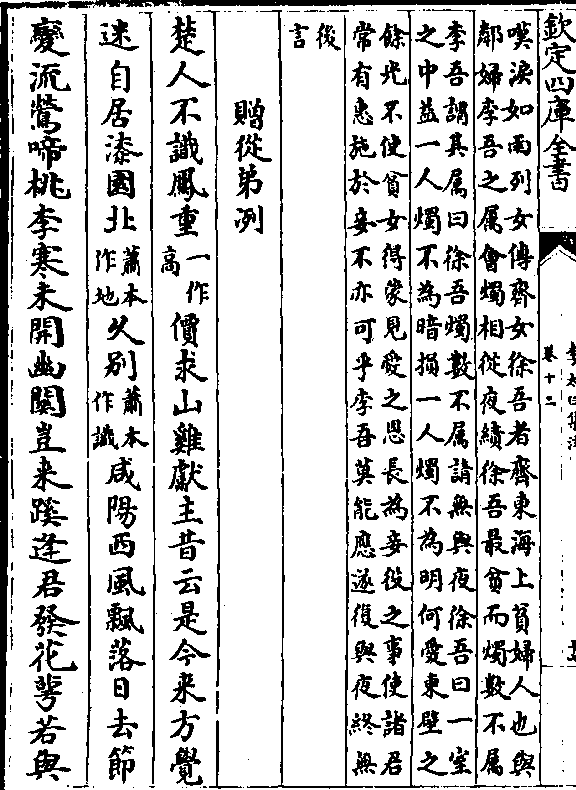 欽定四庫全書
李太白集注
卷十二
嘆淚如雨列女傳齊女徐吾者齊東海上貧婦人也與
鄰婦李吾之属會燭相從夜績徐吾最貧而燭數不属
李吾謂其属曰徐吾燭數不属請無與夜徐吾曰一室
之中益一人燭不為暗損一人燭不為明何愛東壁之
餘光不使貧女得蒙見愛之恩長為妾役之事使諸君
常有惠施於妾不亦可乎李吾莫能應遂復與夜終無
後
言
贈從弟冽
楚人不識鳳重一作高價求山雞獻主昔云是今来方覺
迷自居漆園北蕭本作地久別蕭本作識咸陽西風飄落日去節
變流鶯啼桃李寒未開幽關豈来蹊逢君發花萼若與